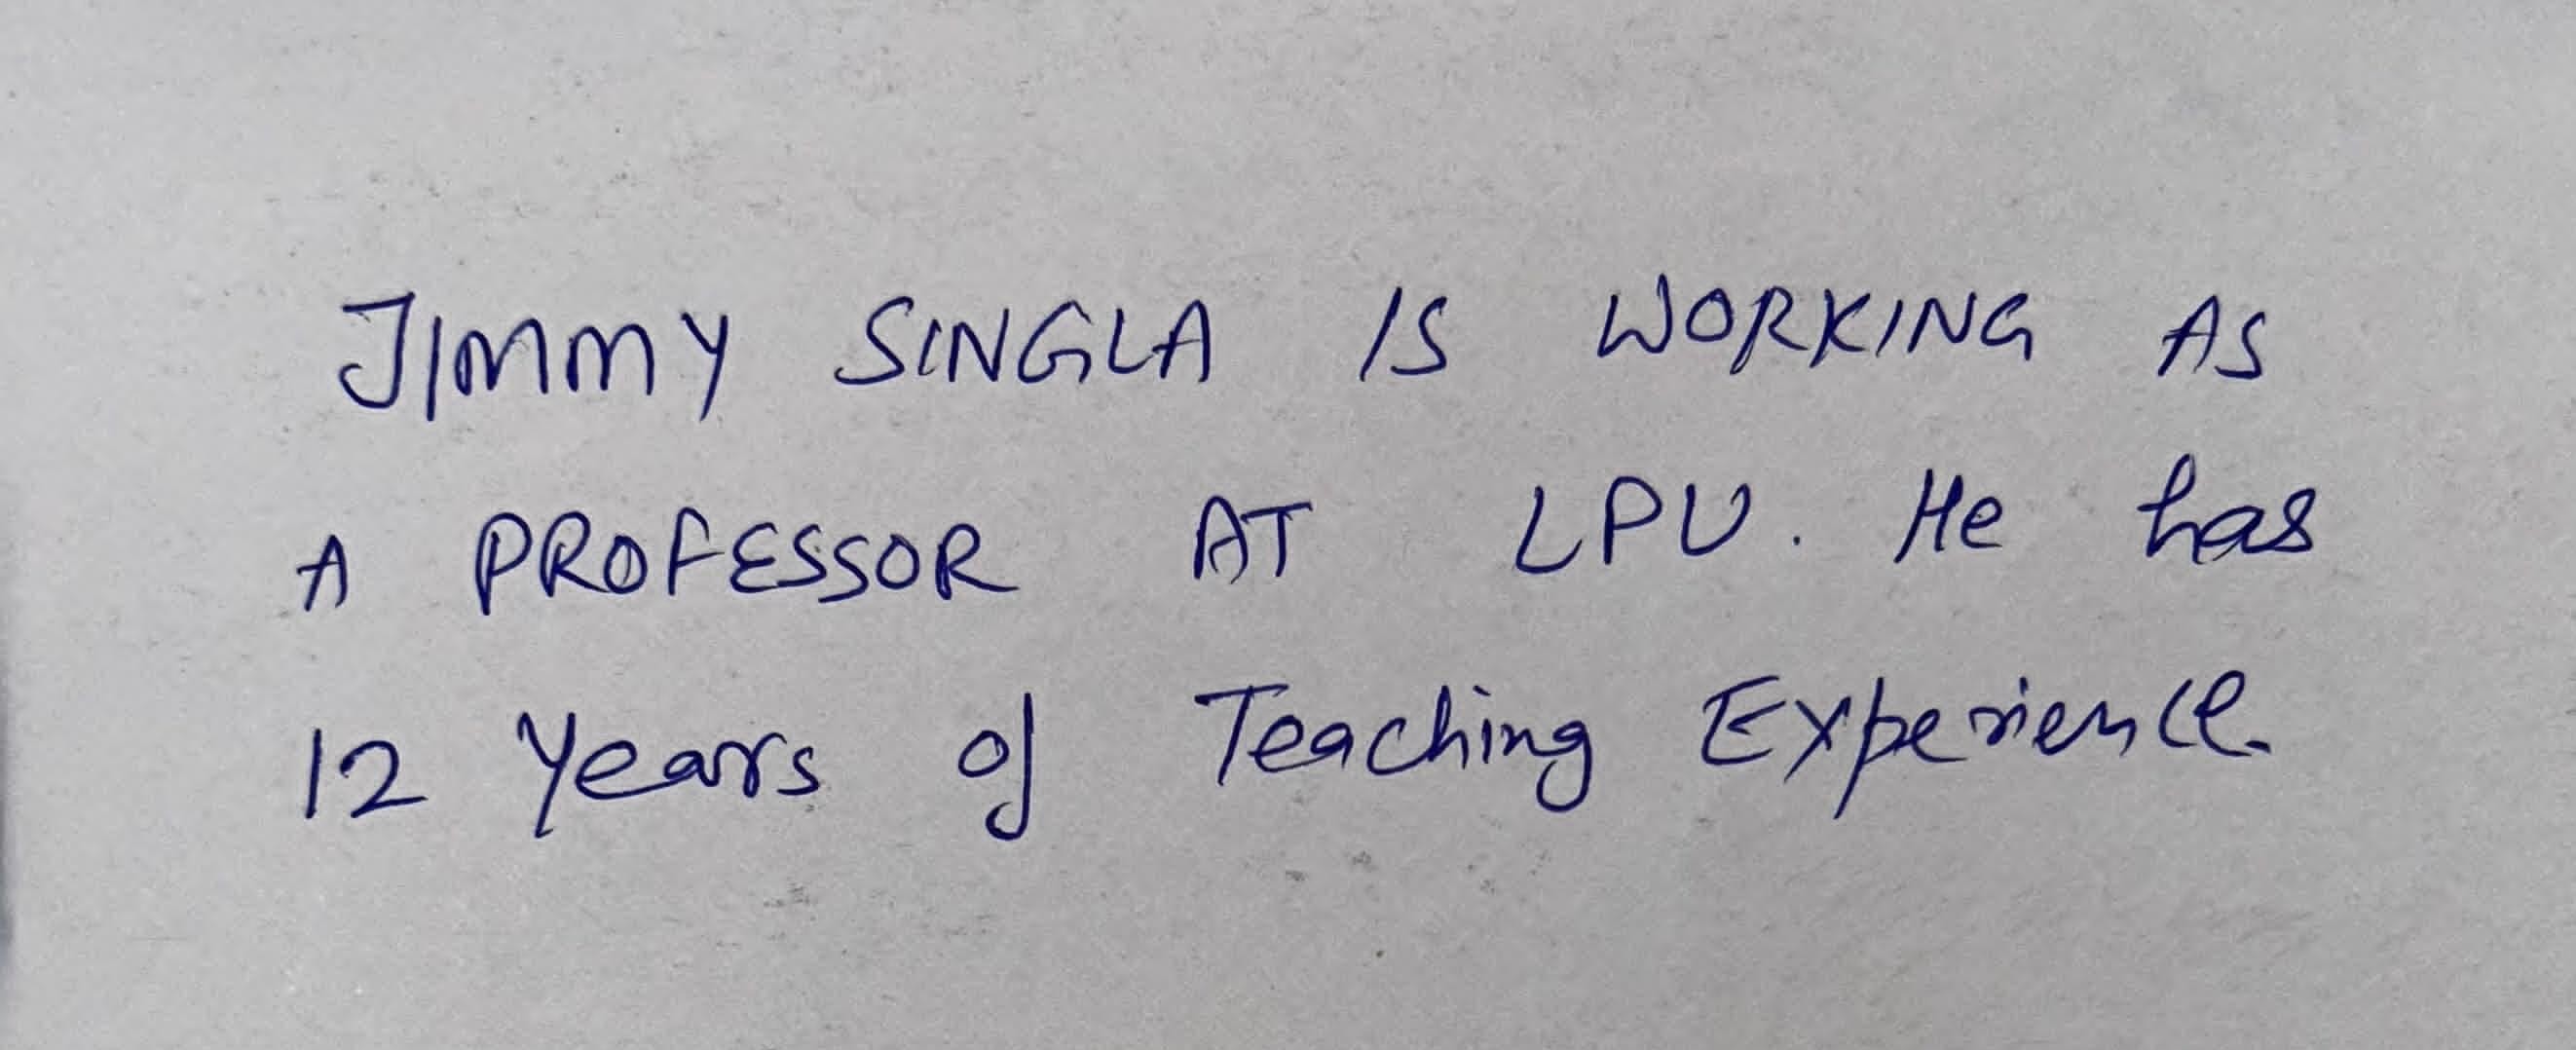 JIMMY SINGLA IS WORKING AS
A PROFESSOR AT LPU. He has
12 Years of Teaching Experience.